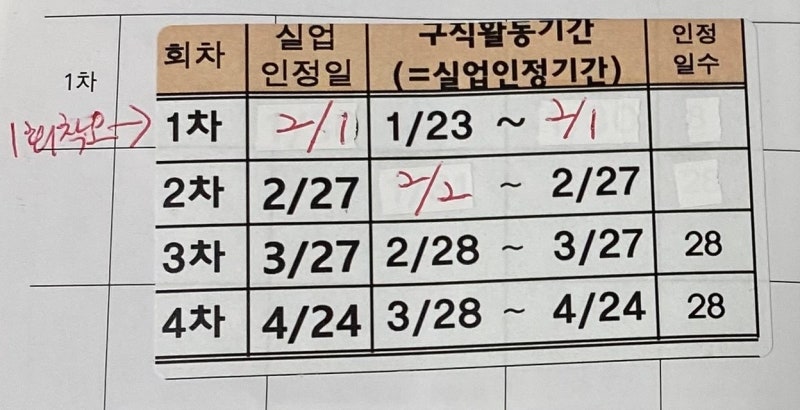 1차
회차 실업 인정일 구직활동기간 (=실업인정기간) 인정 일수
1회착오→ 1차 2/1 1/23 ~ 2/1
2차 2/27 2/2 ~ 2/27 28
3차 3/27 2/28 ~ 3/27 28
4차 4/24 3/28 ~ 4/24 28